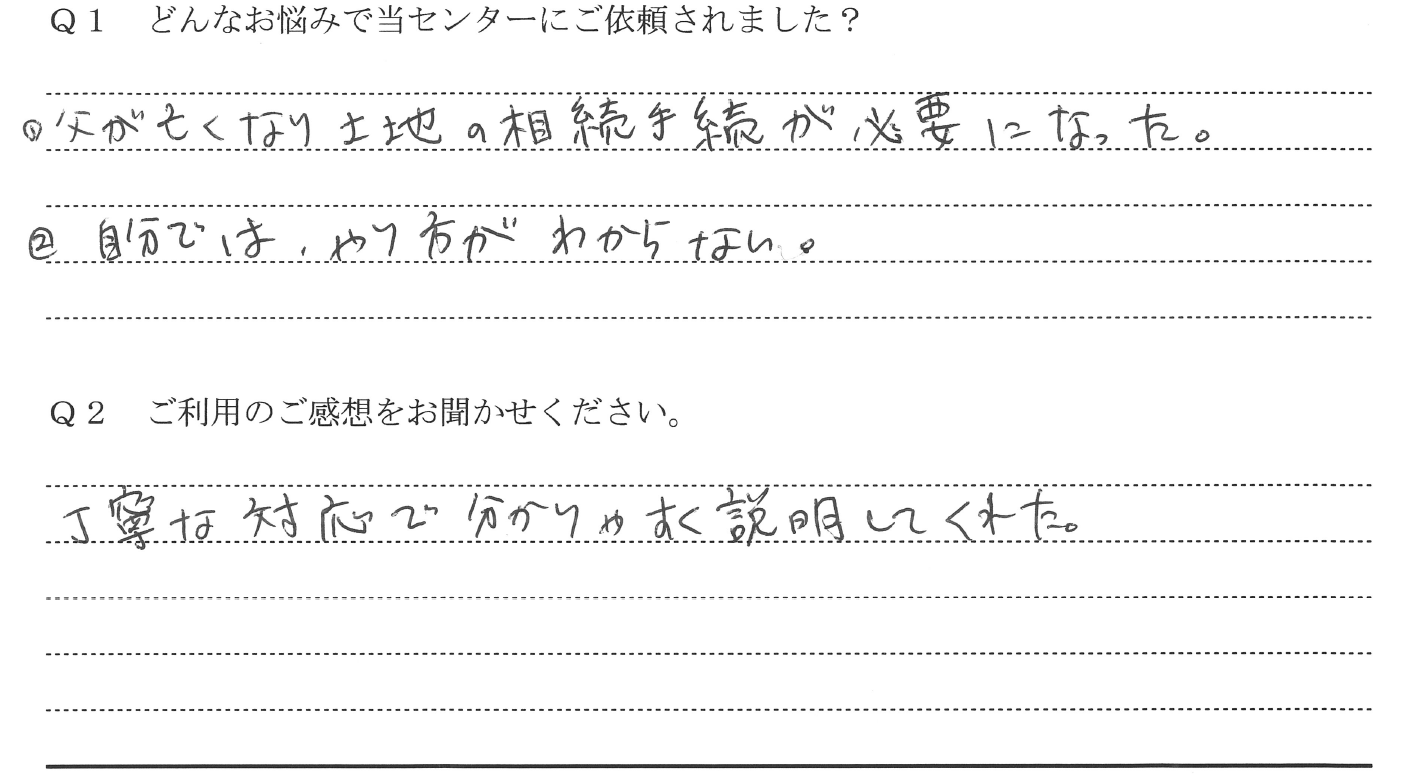 Q1 どんなお悩みで当センターにご依頼されました?
① 父が亡くなり土地の相続手続が必要になった。
② 自分では、やり方がわからない。
Q2 ご利用のご感想をお聞かせください。
丁寧な対応で分かりやすく説明してくれた。